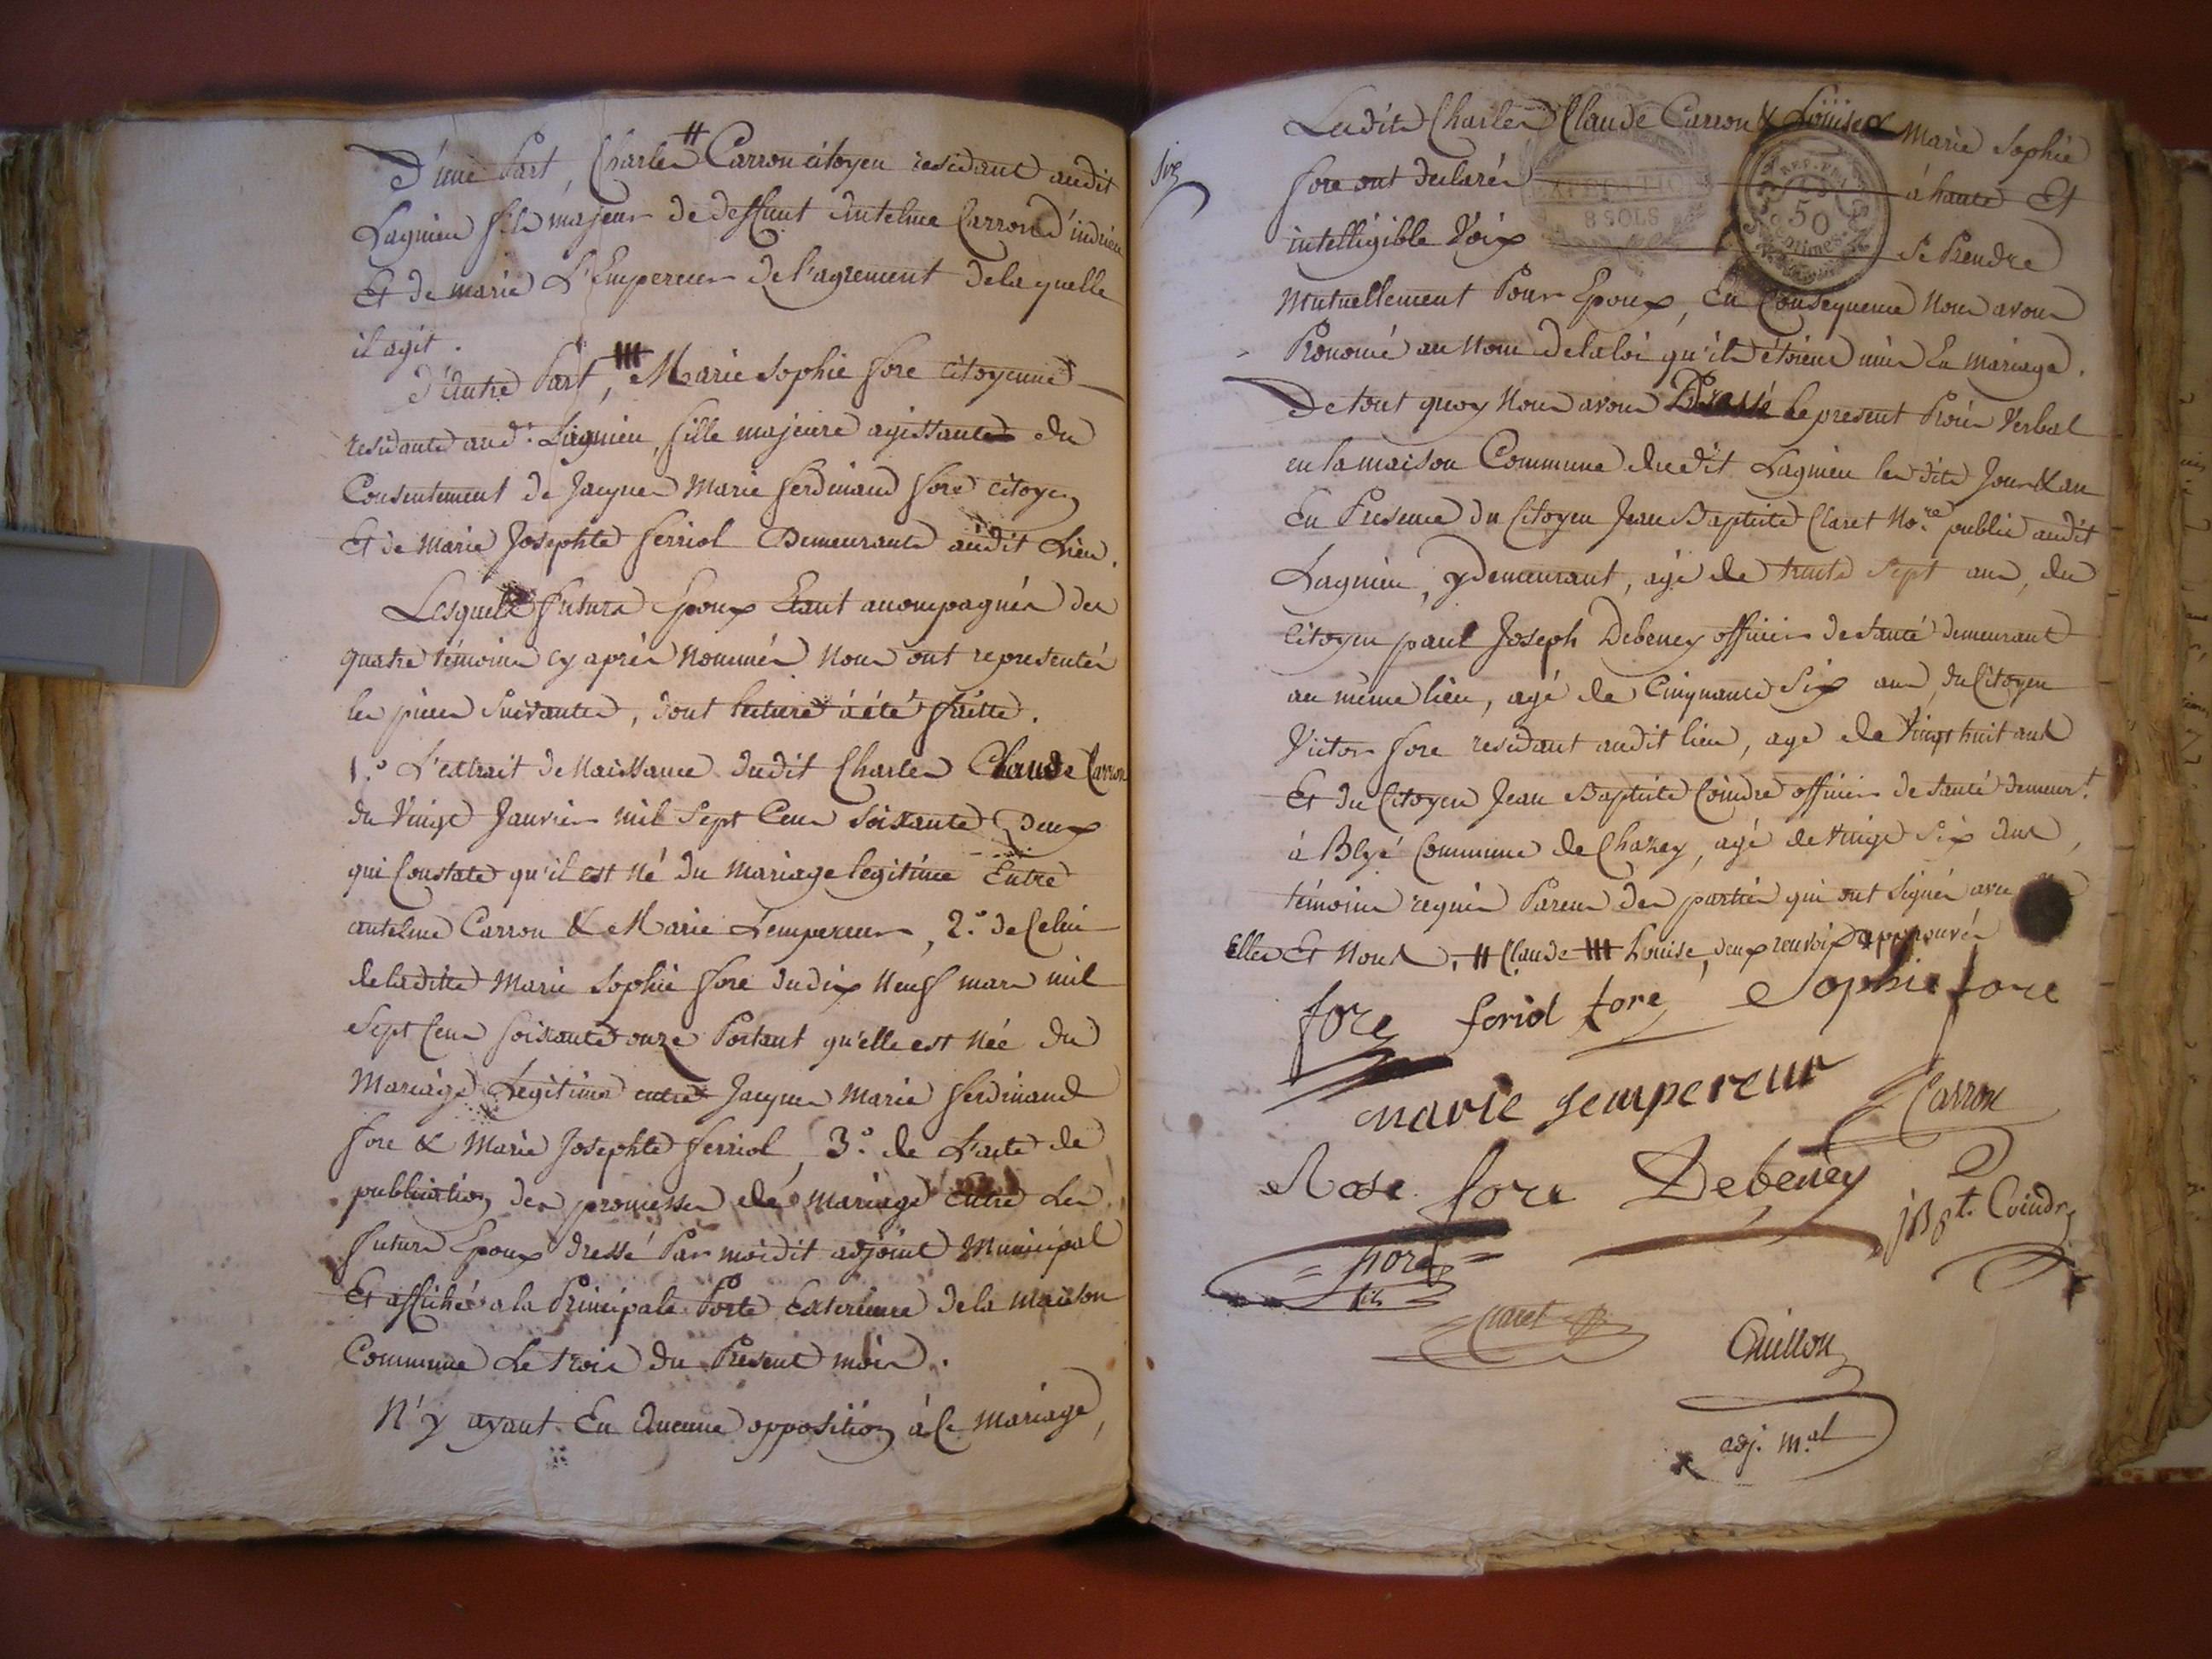 D'une Part, Charles # Carron citoyen residant audit
Lagnieu fils majeur de deffunt Antelme Carron d'indrieu
Et de marie L'Empereur de l'agrement de laquelle
il agit.
D'Autre Part, ⧻ Marie Sophie fore citoyenne
residante aud.t Lagnieu, fille majeure agissante du
Consentement de Jacques Marie ferdinand fore citoyen
Et de Marie Josephte ferriol Demeurants audit Lieu.
Lesquels futurs Epoux Etant accompagnés des
quatre témoins cy après Nommés Nous ont representés
les pieces suivantes, dont lecture à été faitte.
1.° L'extrait de Naissance dudit Charles Claude Carron
du Vingt Janvier mil Sept Cens Soixante Deux
qui Constate qu'il est Né du Mariage legitime Entre
antelme Carron & Marie Lempereur, 2.° de Celui
de laditte Marie Sophie fore du dix Neuf mars mil
Sept Cens soixante onze Portant qu'elle est Née du
Mariage Legitime entre Jacques Marie ferdinand
fore & Marie Josephte ferriol, 3.° de L'acte de
publication des promesses de mariage Entre Les
futurs Epoux dressé Par moidit adjoint Municipal
Et affiché a la Principale Porte Exterieure de la Maison
Commune Le trois du Present mois.
N'y ayant Eu Aucune opposition à Ce Mariage,
Lesdits Charles Claude Carron & Loüise Marie Sophie
fore ont declarés à haute Et
EXPEDITION
8 SOLS
REP. FRA
50
Centimes
intelligible Voix Se Prendre
Mutuellement Pour Epoux, En Consequence Nous avons
Prononcé au Nom de la loi qu'ils étoient unis En mariage.
De tout quoy Nous avons Dressé le present Procès Verbal
en la maison Commune dudit Lagnieu les dits Jour & an
En Presence du Citoyen Jean Baptiste Claret No.re public audit
Lagnieu, y demeurant, agé de trente Sept ans, du
Citoyen paul Joseph Debeney officier de santé demeurant
au même lieu, agé de Cinquante Six ans, du Citoyen
Victor fore residant audit lieu, agé de Vingt huit ans
Et du Citoyen Jean Baptiste Coindre officier de santé demeur.t
à Blyé Commune de Chazey, agé de Vingt Six ans,
témoins requis Parens des parties qui ont signés avec
Elles Et Nous. # Claude ⧻ Louise, deux renvois approuvés
fore feriol fore Sophie fore
marie lempereur Carron
Rose fore Debeney jBpt. Coindre
fore
fils
Claret
Cuillon
adj. m.al